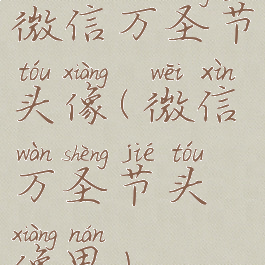 微信万圣节
tóu xiàng wēi xìn
头像(微信
wàn shèng jié tóu
万圣节头
xiàng nán
像男)